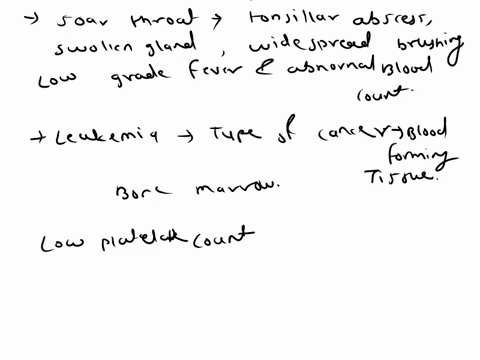 → Soar throat → tonsillar abscess,
swollen gland, widespread brushing
Low grade fever & abnormal Blood
count.
→ Leukemia → Type of cancer → Blood
forming
Tissue.
Bone marrow.
Low platelete count